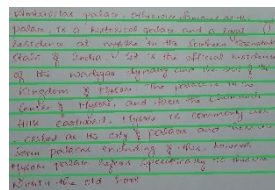 palace, is a historical palace and a royal
Residence at mysore in the Southern Karnataka
State of India. It is the official residence
of the wadiyar dynasty and the seat of the
Kingdom of Mysore. The palace is in
Center of Mysore, and faces the Chamundi
Hills Eastward. Mysore is commonly
as the city of palaces and
Seven palaces including this, however
Mysore palace refers specifically to
Within the old fort